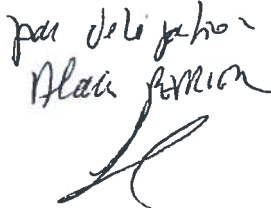 par délégation
Alain